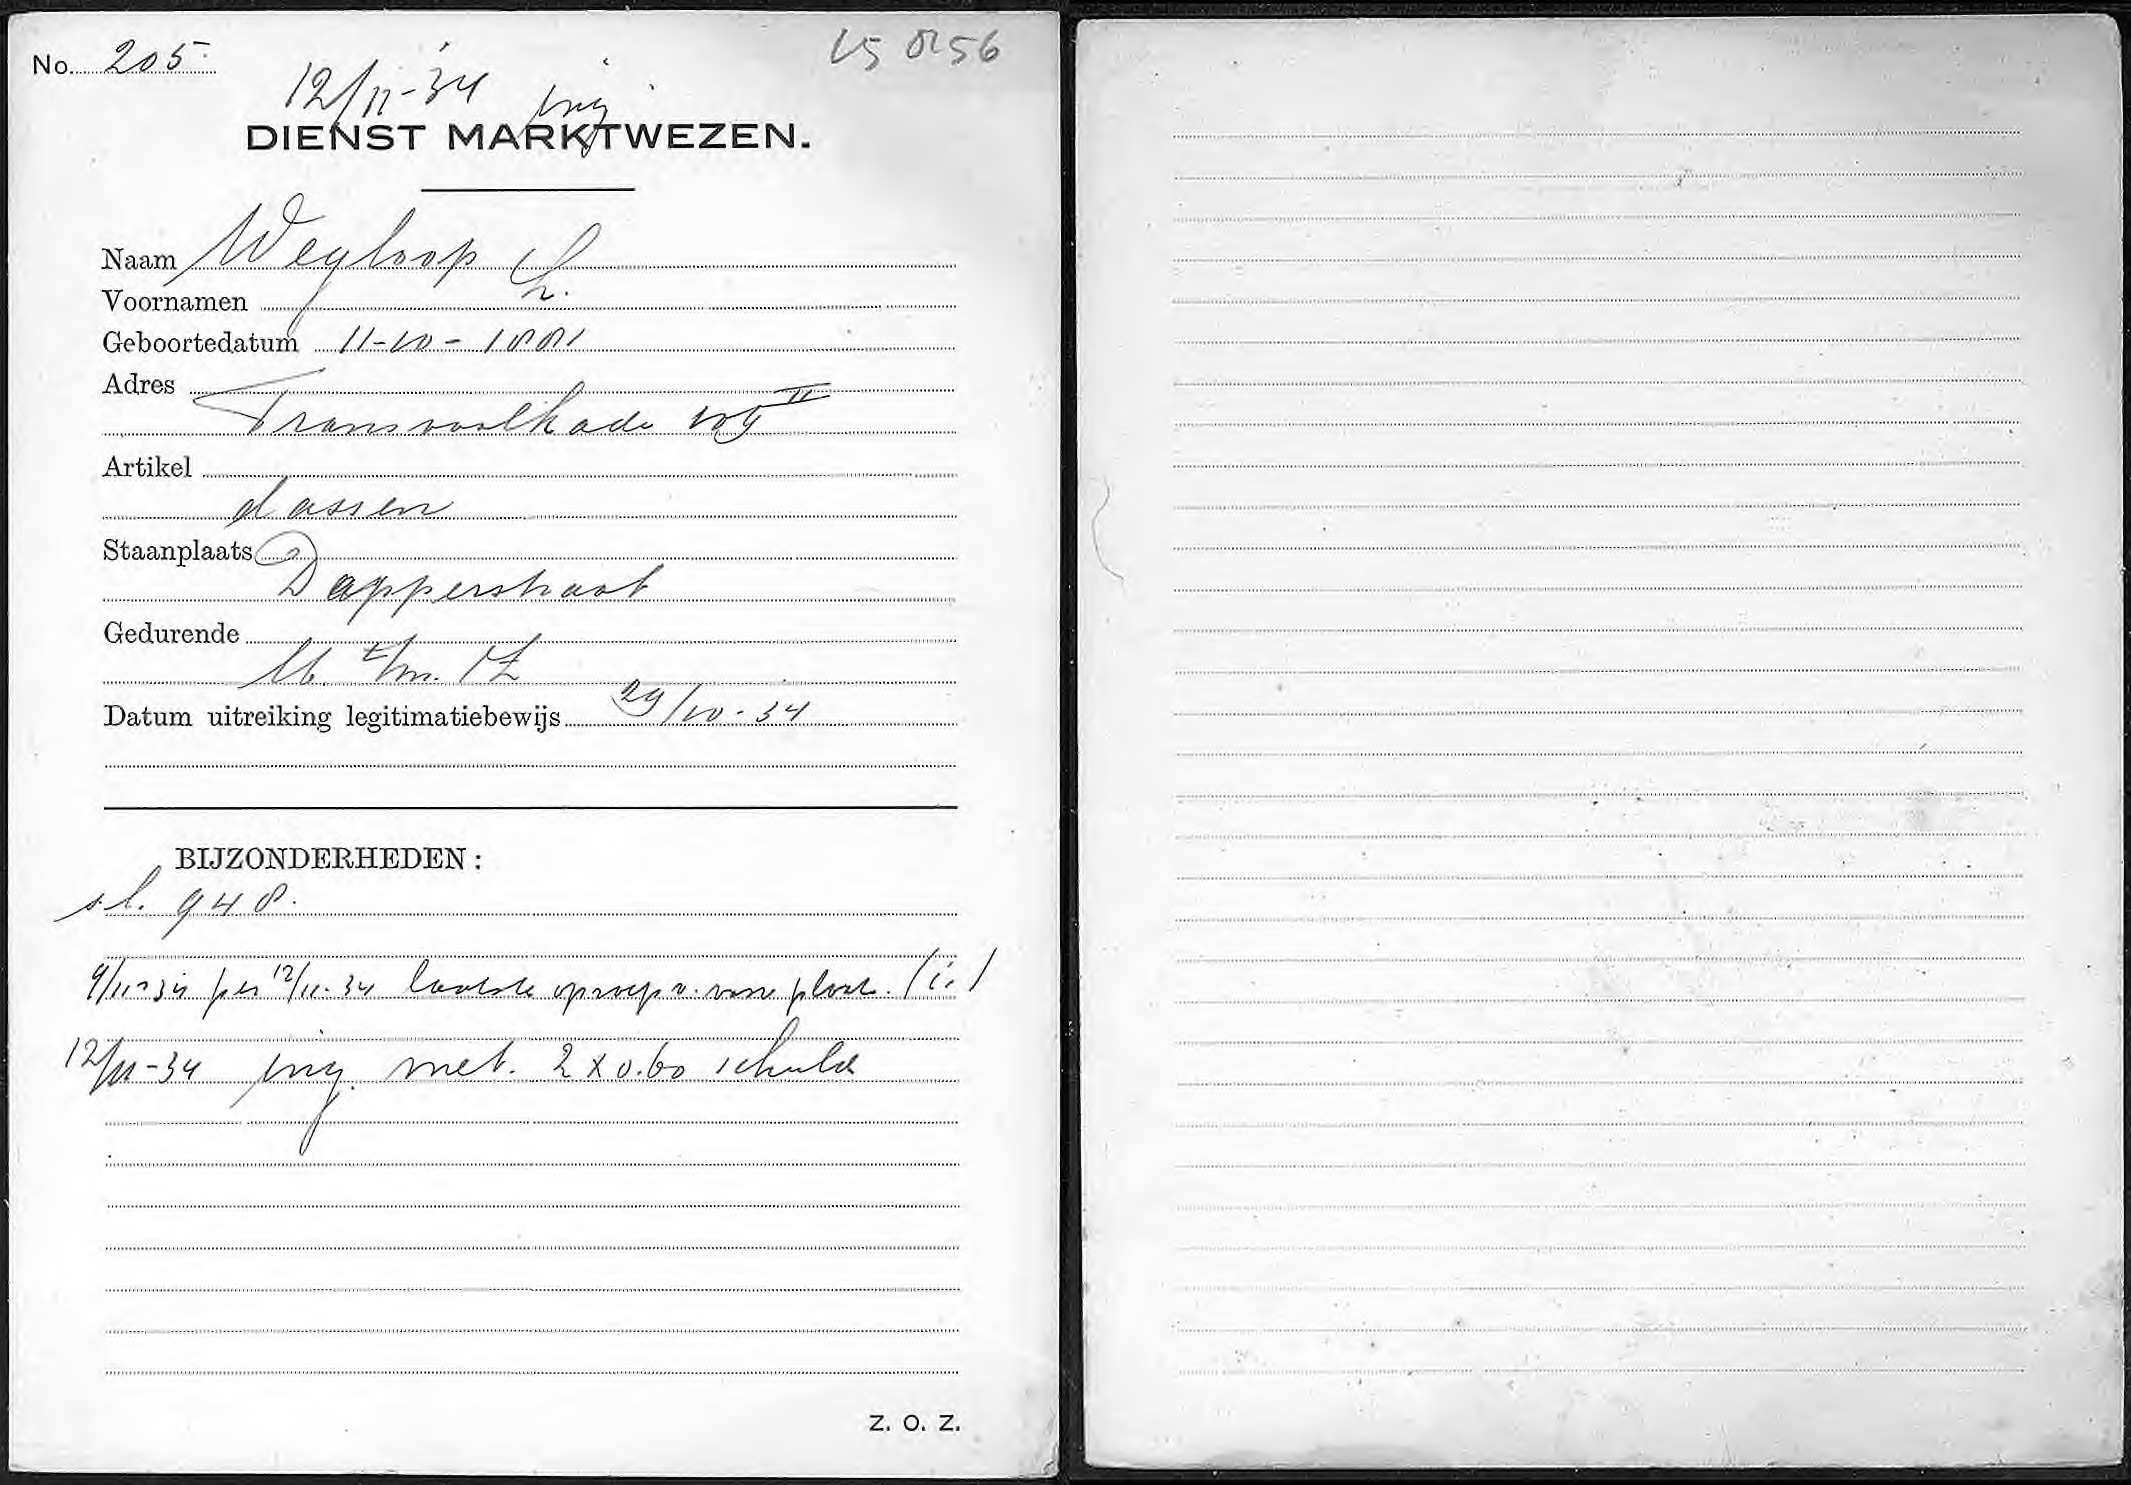 No. 205
V5 8156
12/11-'34 ing
DIENST MARKTWEZEN.
Naam Wegloop L.
Voornamen
Geboortedatum 11-10-1881
Adres
Transvaalkade 109 II
Artikel
dassen
Staanplaats
Dapperstraat
Gedurende
M. t/m. Z
Datum uitreiking legitimatiebewijs 29/10-34
BIJZONDERHEDEN:
s.l. 948.
9/11-34 per 12/11-34 laatste oproep v. vaste plaats.
12/11-34 ing. met. 2 x 0.60 schuld
Z. O. Z.